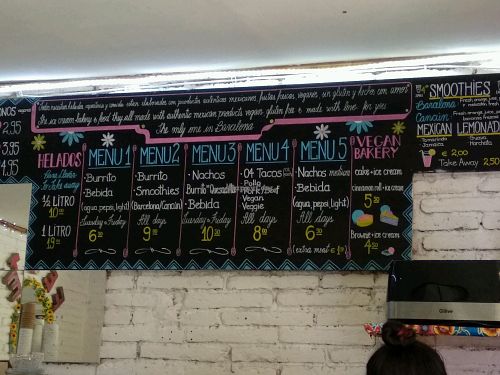 Todos nuestros helados, repostería y comida estan elaborados con productos auténticos mexicanos, frutas frescas, veganos, sin gluten y hecho con amor
The ice cream bakery & food they all made with authentic mexican products vegan gluten free & made with love for you
The only one in Barcelona
2,95
3,95
4,95
HELADOS
Para llevar
To take away
½ LITRO
10.
1 LITRO
19.
MENU 1
Burrito
Bebida
(agua, pepsi, light)
Tuesday to Friday
6.
MENU 2
Burrito
Smoothies
(Barcelona/Cancún)
All days
9.
MENU 3
Nachos
Burrito
Bebida
Tuesday to Friday
10.
MENU 4
04 Tacos
Pollo
Beef
Vegan
Veggie
All days
8.
MENU 5
Nachos medium
Bebida
(agua, pepsi, light)
All days
6.
(extra meat € 1
VEGAN
BAKERY
cake + ice cream
6.
cinnamon roll + ice cream
5.
Brownie + ice cream
4.
SMOOTHIES
Barcelona
Cancún
MEXICAN LEMONADE
Tamarindo
Horchata
Jamaica
€ 2,00
Take Away 2,50